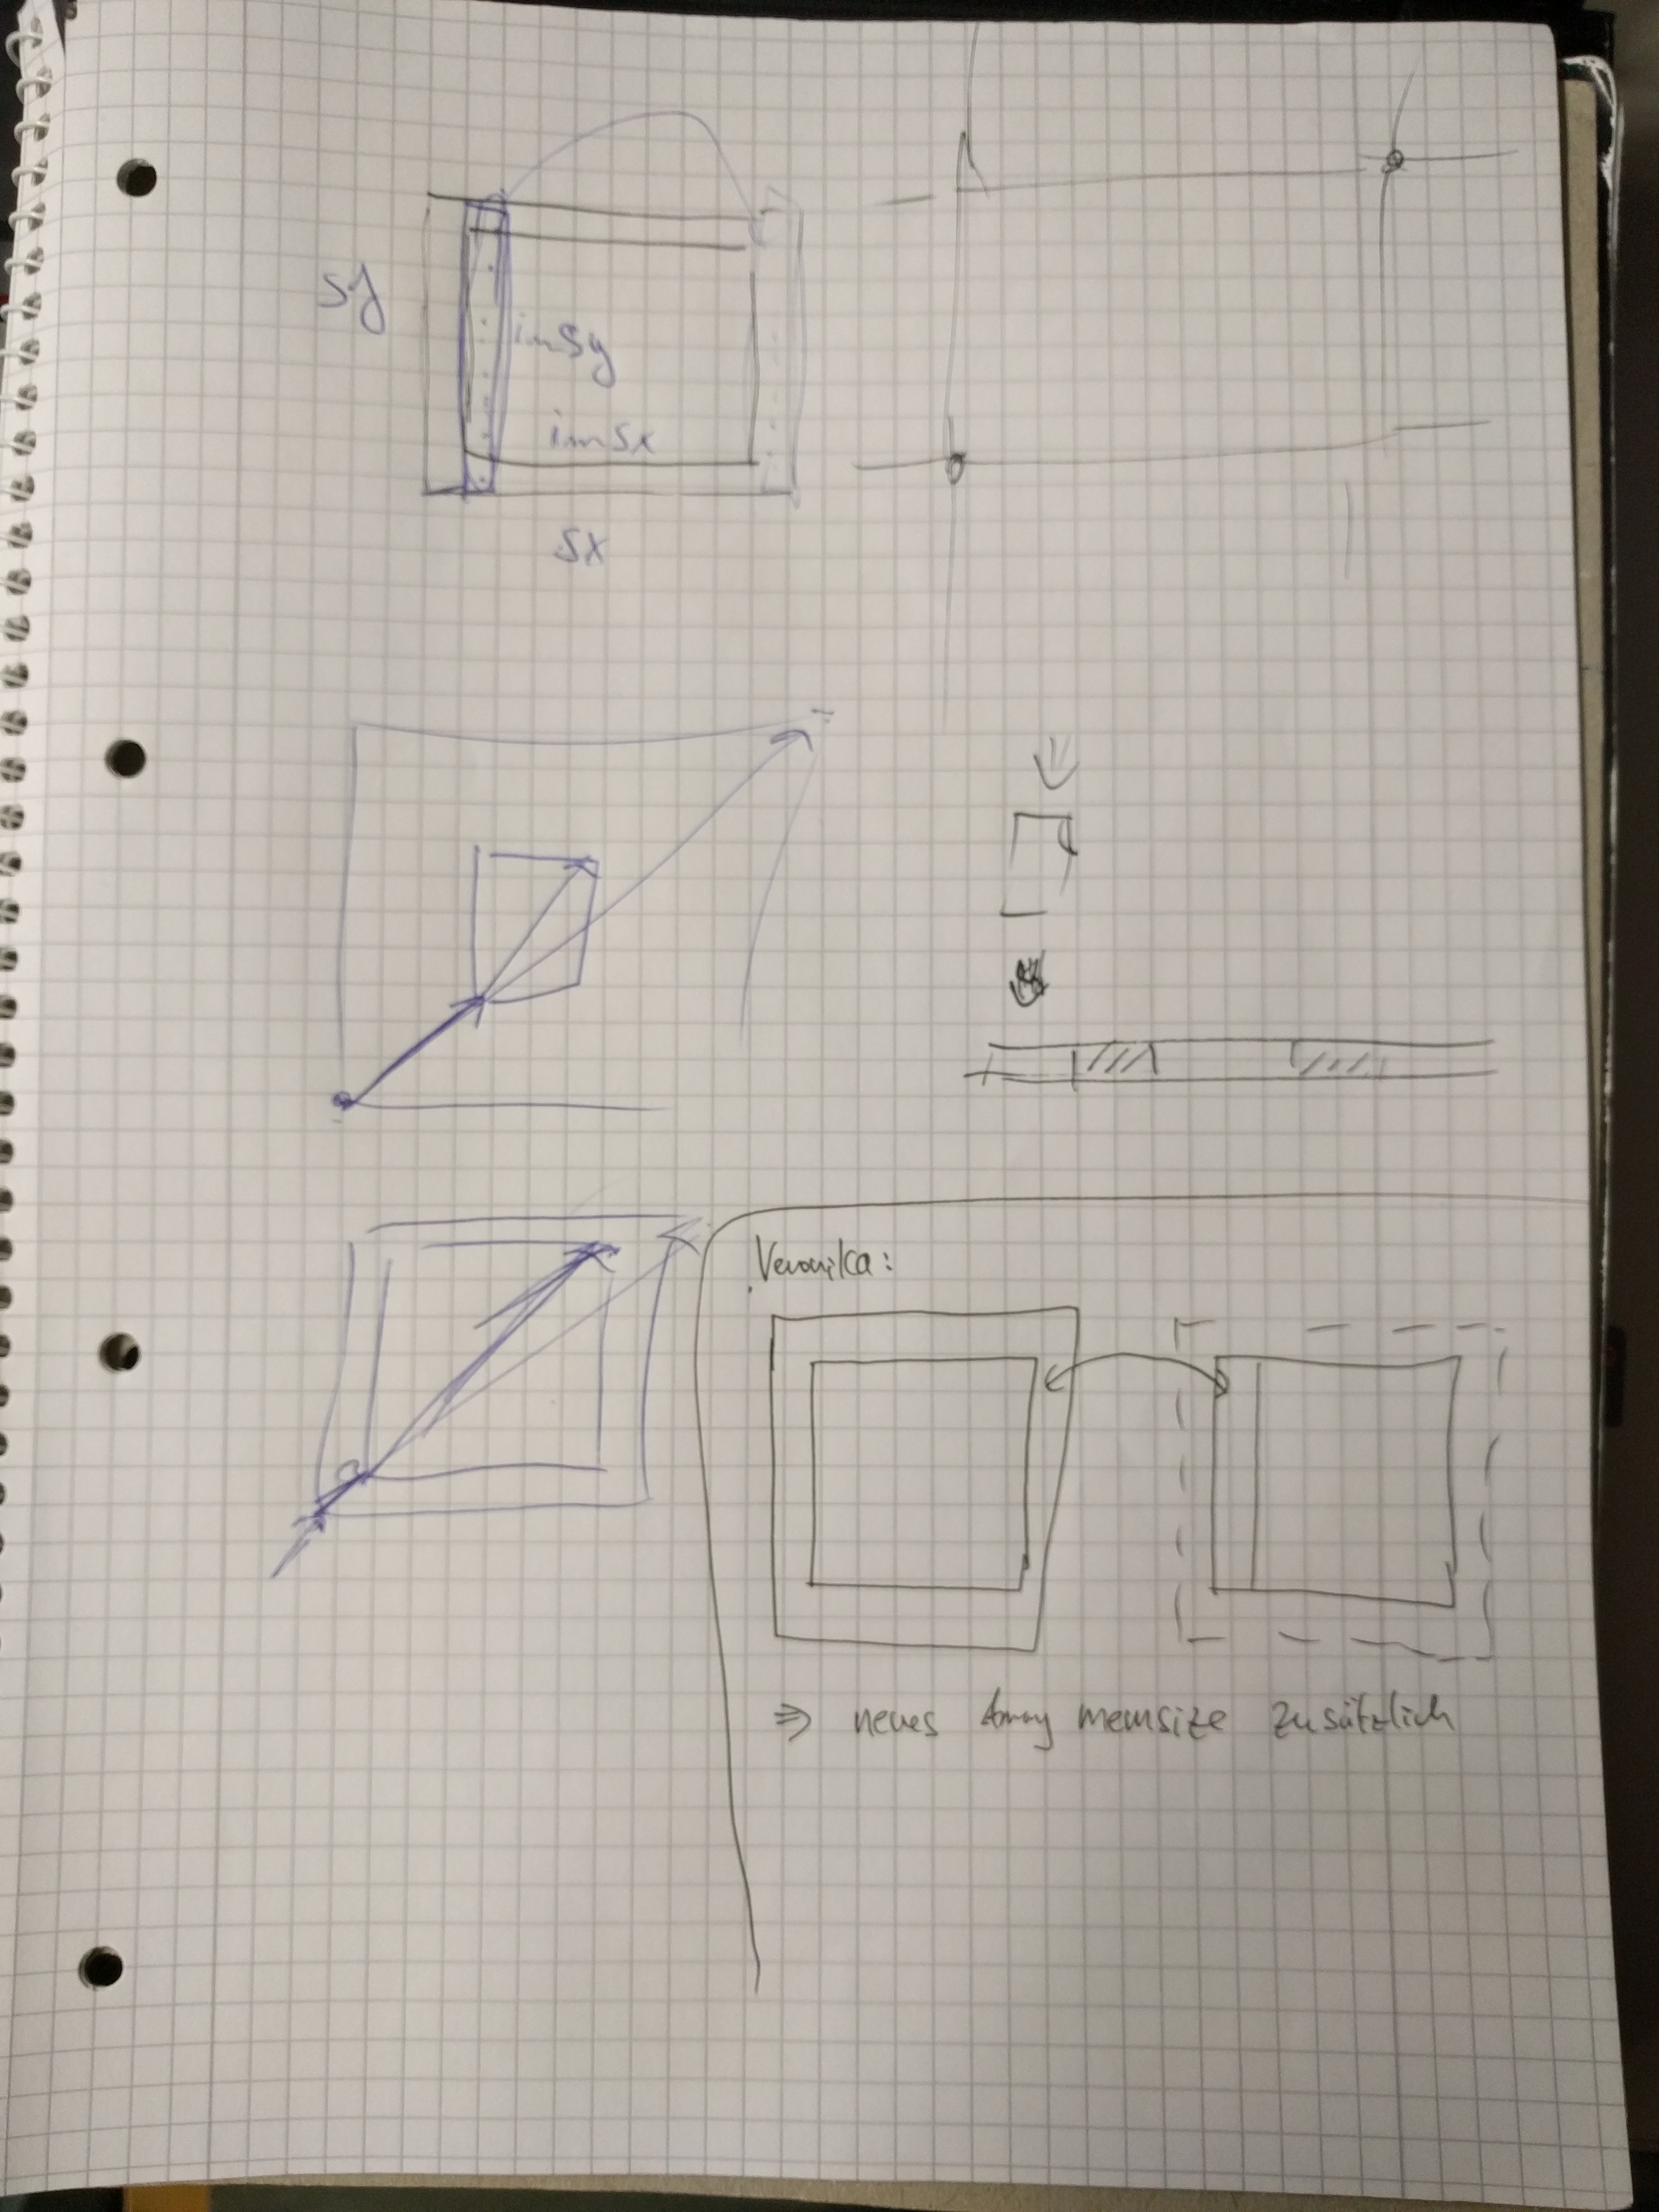 sy
imsy
imsx
sx
Veronika:
⇒ neues Array memsize zusätzlich